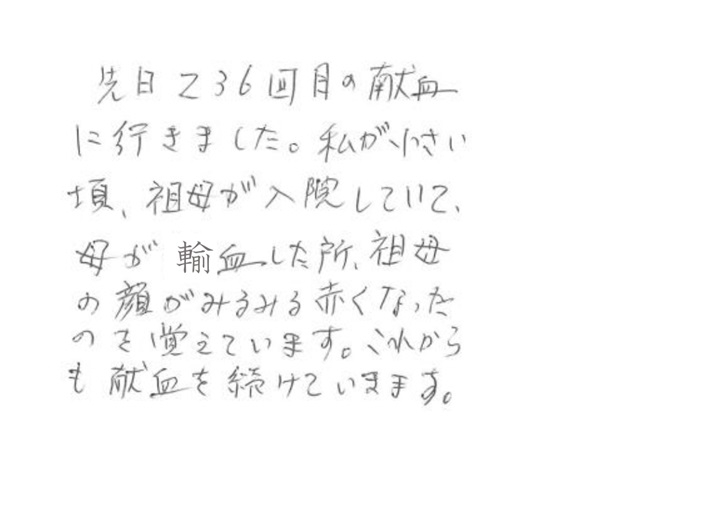 先日で36回目の献血
に行きました。私が小さい
頃、祖母が入院していて、
母が輸血した所、祖母
の顔がみるみる赤くなった
のを覚えています。これから
も献血を続けていきます。